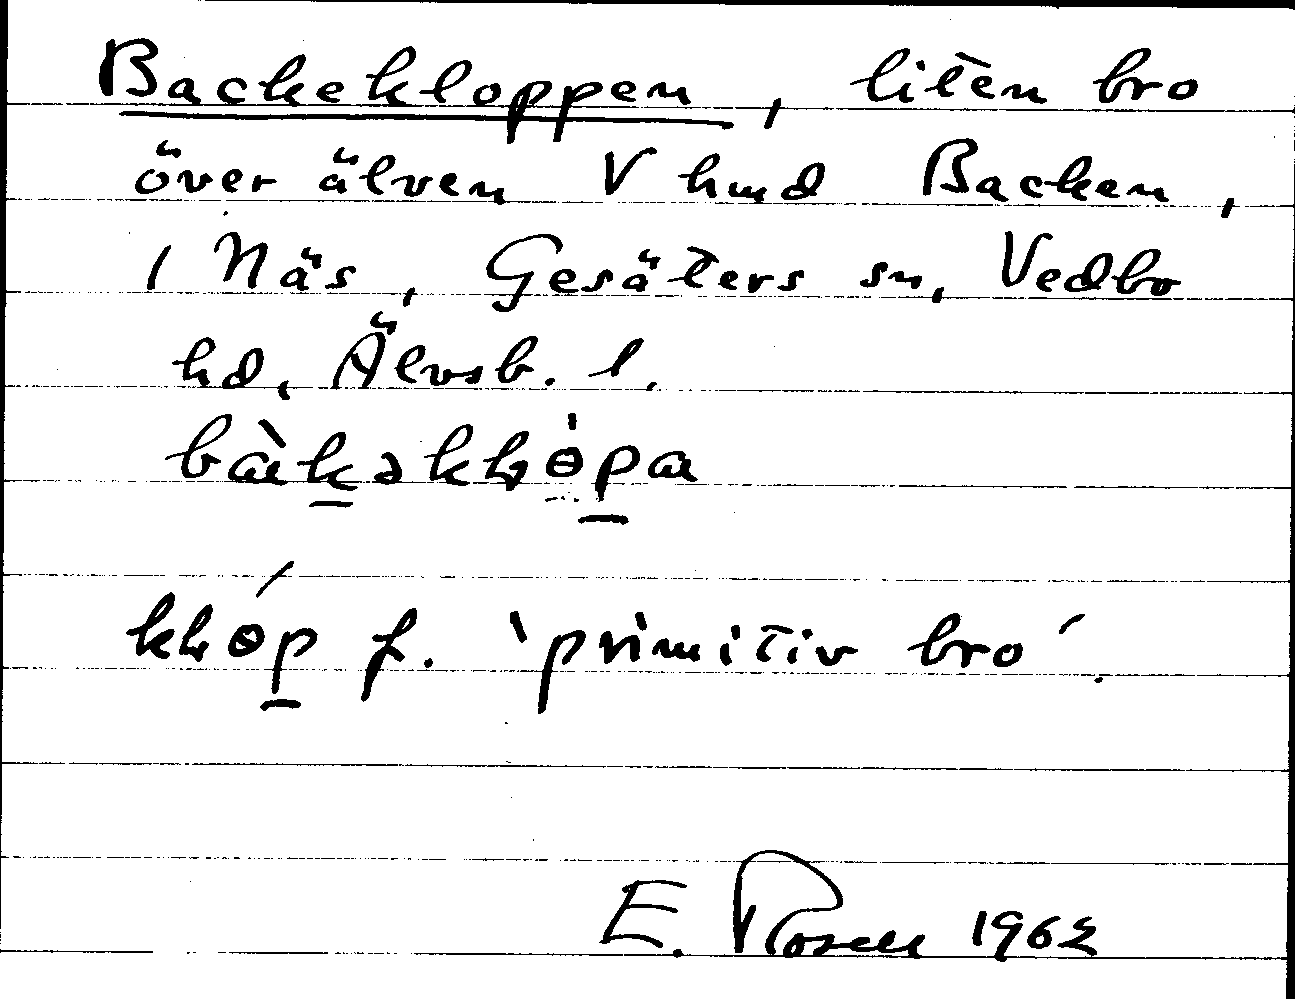 Backekloppen, liten bro
över älven V hmd Backen,
1 Näs, Gesäters sn, Vedbo
hd, Älvsb. l.
bàkəkɽɵpa
kɽɵ́p f. 'primitiv bro'.
E. Rosell 1962